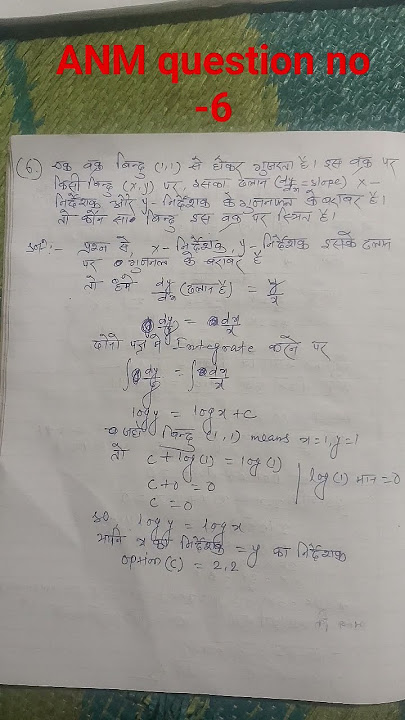 ANM question no
-6
(6). एक वक्र बिन्दु (1,1) से होकर गुजरता है। इस वक्र पर
किसी बिन्दु (x,y) पर, इसका ढलान (dy/dx = slope) x-
निर्देशक और y-निर्देशक के गुणनफल के बराबर है।
तो कौन सा बिन्दु इस वक्र पर स्थित है।
प्रश्न से, x-निर्देशक, y-निर्देशक इसके ढलान
पर गुणनफल के बराबर है
तो हमे dy/dx (ढलान है) = y/x
dy/y = dx/x
दोनो पक्षो में Integrate करने पर
∫dy/y = ∫dx/x
log y = log x + c
जहाँ बिन्दु (1,1) means x=1, y=1
तो c + log(1) = log(1) | log(1) मान = 0
c+0 = 0
c = 0
so, log y = log x
यानि x का निर्देशक = y का निर्देशक
option (c) = 2,2